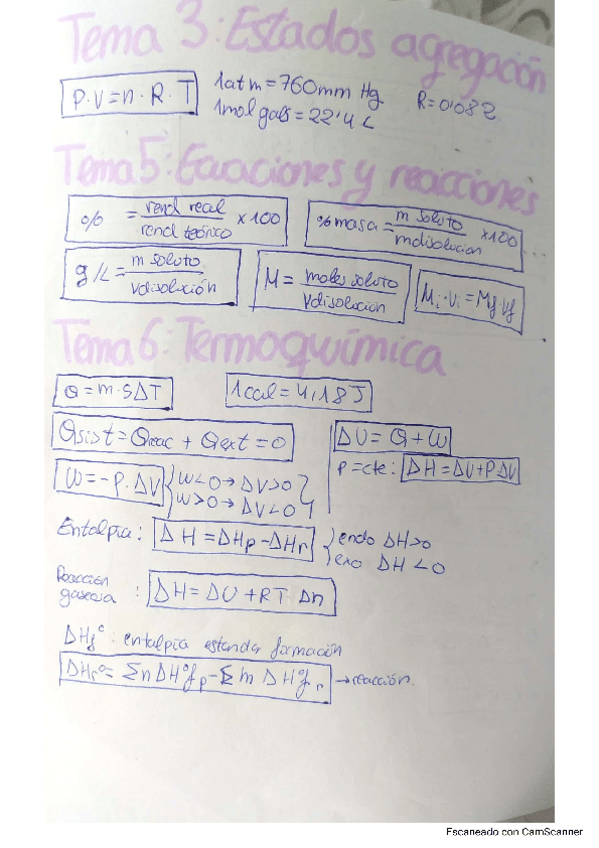 Tema 3: Estados agregación
P·V=n·R·T
1atm=760mm Hg
1mol gas=22'4 L
R=0'082
Tema 5: Ecuaciones y reacciones
% = rend real / rend teórico x 100
% masa = m soluto / m disolucion x100
g/L = m soluto / V disolución
M = moles soluto / V disolucion
Mi·Vi=Mf Vf
Tema 6: Termoquímica
Q=m·SΔT
1cal=4,18J
Qsist=Qreac + Qext=0
ΔU=Q+W
W=-P·ΔV
W<0→ΔV>0
W>0→ΔV<0
P=cte: ΔH=ΔU+PΔV
Entalpía: ΔH=ΔHp-ΔHr
endo ΔH>0
exo ΔH<0
Reacción gaseosa : ΔH=ΔU+RT Δn
ΔHfº: entalpía estandar formación
ΔHrº= Σn ΔHºf p - Σ m ΔHºf r → reacción.
Escaneado con CamScanner